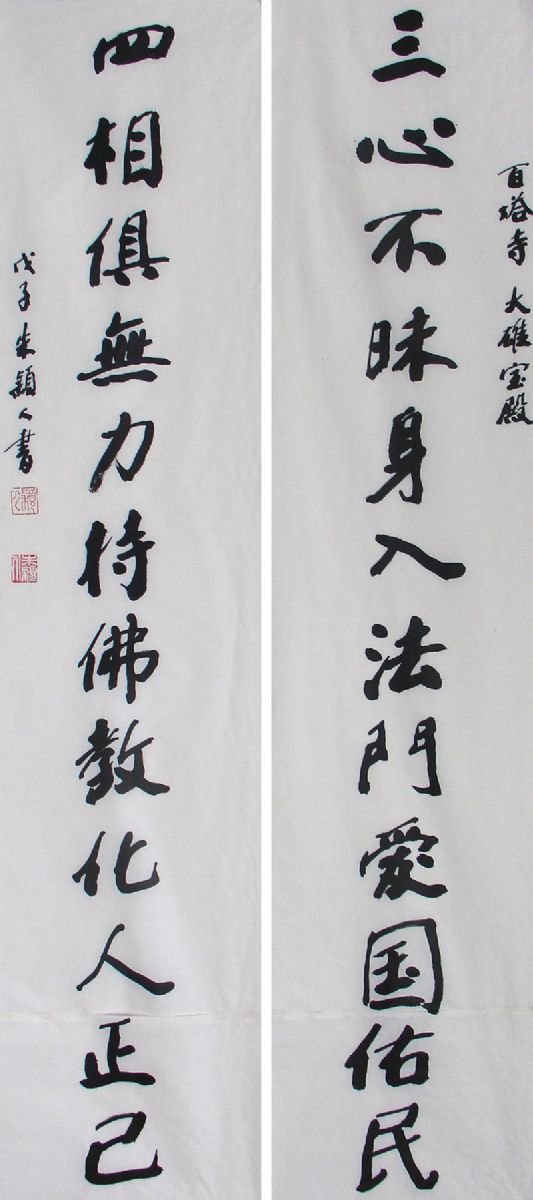 百塔寺 大雄宝殿
三心不昧身入法門愛国佑民
四相俱無力持佛教化人正己
戊子朱穎人書